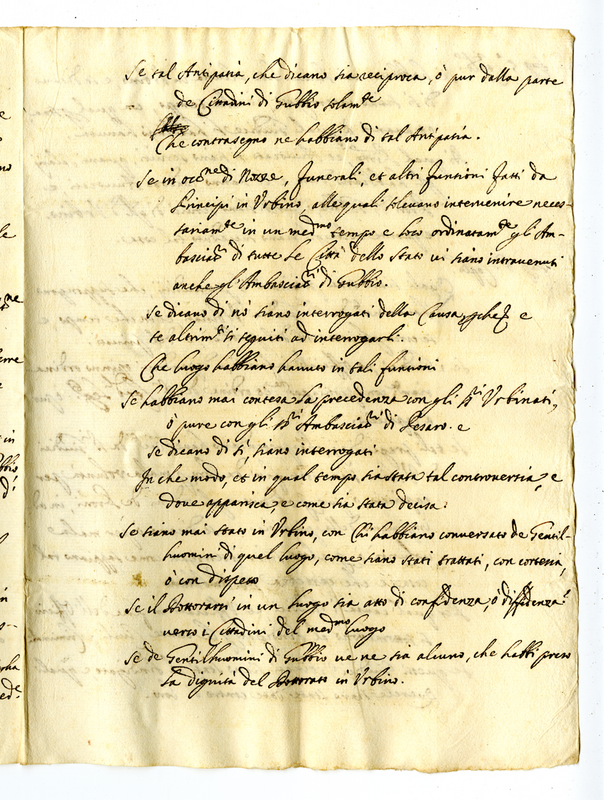 Se tal Antipatia, che dicano sia reciproca, ò pur dalla parte
de Cittadini di Gubbio solam.te
Che contrasegno ne habbiano di tal Antipatia.
Se in occ.ne di Nozze, funerali, et altri funtioni fatti da
Principi in Urbino, alle quali solevano intervenire neces-
sariam.te in un med.mo tempo e loco ordinatam.te gl'Am-
basciat.ri di tutte le Città dello Stato vi siano intravenuti
anche gl'Ambasciat.ri di Gubbio.
Se dicano di nò siano interrogati della Causa, e
se altrim.ti si seguiti ad interrogarli.
Che luogo habbiano havuto in tali funtioni
Se habbiano mai contesa la precedenza con gli SS.ri Urbinati,
ò pure con gli SS.ri Ambasciat.ri di Pesaro. e
se dicano di sì, siano interrogati
In che modo, et in qual tempo sia stata tal controversia, e
dove apparisca, e come sia stata decisa.
Se siano mai stato in Urbino, con chi habbiano conversato de Gentil-
huomin di quel luogo, come siano stati trattati, con cortesia,
ò con dispetto
Se il Dottorarsi in un luogo sia atto di confidenza, ò diffidenza
verso i Cittadini del med.mo luogo
Se de Gentilhuomini di Gubbio ve ne sia alcuno, che habbi preso
la dignità del Dottorato in Urbino.